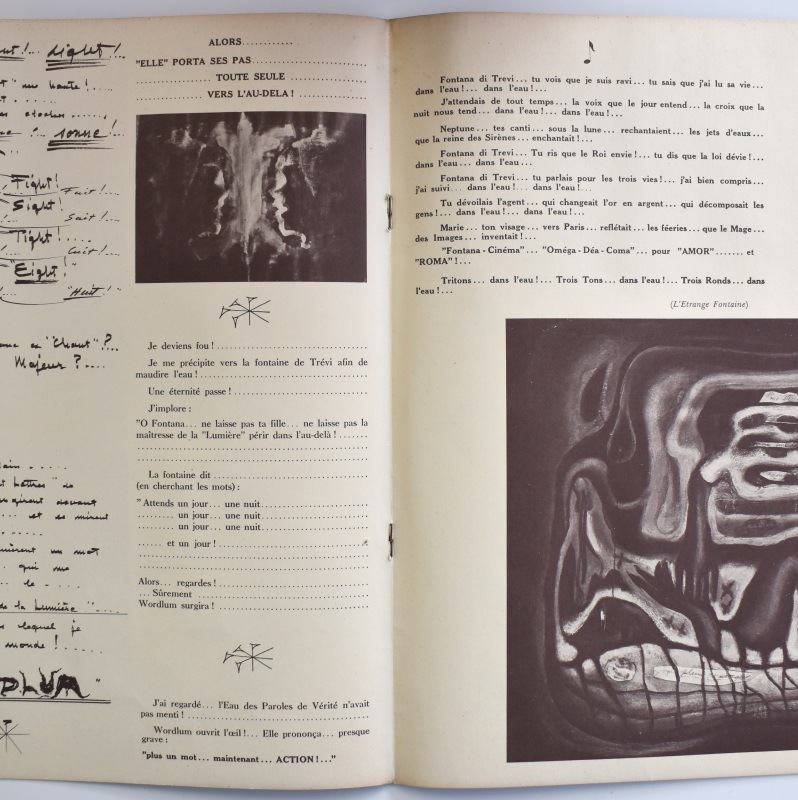 dight!...
haute!....
sonne!..
Fight!
Fuit!....
Sight!
Suit!....
Tight!.....
Cuit!...
"Eight!"
"Huit!"
en "Chant"?..
Majeur?....
lettres" de
devant
et se mirent
un mot
qui me
le
de la Lumière"....
lequel je
monde!
ALORS............
"ELLE" PORTA SES PAS..........................
.................. TOUTE SEULE ..................
.................. VERS L'AU-DELA! ..................
Je deviens fou! ..................................
Je me précipite vers la fontaine de Trévi afin de
maudire l'eau! ..................................
Une éternité passe! ..............................
J'implore:
"O Fontana... ne laisse pas ta fille... ne laisse pas la
maîtresse de la "Lumière" périr dans l'au-delà! .......
La fontaine dit ..................................
(en cherchant les mots):
"Attends un jour... une nuit.......................
......... un jour... une nuit.......................
......... un jour... une nuit.......................
...... et un jour! ..................................
Alors... regardes! ..................................
... Sûrement ..................................
Wordlum surgira! ..................................
J'ai regardé... l'Eau des Paroles de Vérité n'avait
pas menti! ..................................
Wordlum ouvrit l'œil!... Elle prononça... presque
grave:
"plus un mot... maintenant... ACTION!..."
Fontana di Trevi... tu vois que je suis ravi... tu sais que j'ai lu sa vie...
dans l'eau!... dans l'eau!...
J'attendais de tout temps... la voix que le jour entend... la croix que la
nuit nous tend... dans l'eau!... dans l'eau!...
Neptune... tes canti... sous la lune... rechantaient... les jets d'eaux...
que la reine des Sirènes... enchantait!...
Fontana di Trevi... Tu ris que le Roi envie!... tu dis que la loi dévie!...
dans l'eau... dans l'eau...
Fontana di Trevi... tu parlais pour les trois vies!... j'ai bien compris...
j'ai suivi... dans l'eau!... dans l'eau!...
Tu dévoilais l'agent... qui changeait l'or en argent... qui décomposait les
gens!... dans l'eau!... dans l'eau!...
Marie... ton visage... vers Paris... reflétait... les féeries... que le Mage...
des Images... inventait!...
"Fontana-Cinéma"... "Oméga-Déa-Coma"... pour "AMOR"....... et
"ROMA"!...
Tritons... dans l'eau!... Trois Tons... dans l'eau!... Trois Ronds... dans
l'eau!...
(L'Etrange Fontaine)